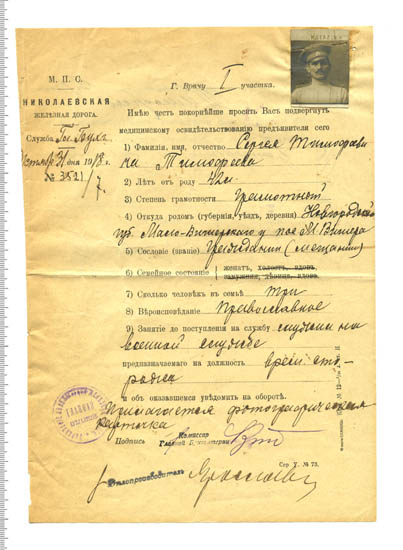 М. П. С.
НИКОЛАЕВСКАЯ
ЖЕЛѢЗНАЯ ДОРОГА.
Служба
№ 3521/7
Г. Врачу I участка.
Имѣю честь покорнѣйше просить Васъ подвергнуть
медицинскому освидѣтельствованію предъявителя сего
1) Фамилія, имя, отчество Сергея Тимофееви
ча Тимофеева
2) Лѣтъ отъ роду 42
3) Степень грамотности Грамотный
4) Откуда родомъ (губернія, уѣздъ, деревня) Новгородской
губ. Мало-Вишерского у пос М. Вишера
5) Сословіе (званіе) Гражданин (мещанин)
6) Семейное состояніе женатъ, холостъ, вдовъ,
замужняя, дѣвица, вдова.
7) Сколько человѣкъ въ семьѣ Три
8) Вѣроисповѣданіе Православное
9) Занятіе до поступленія на службу служил на
военной службе
предназначаемаго на должность
и объ оказавшемся увѣдомить на оборотѣ.
Прилагается фотографическая
карточка
Подпись
Комиссар
Главной Бухгалтеріи
Сер V. № 73.
Дѣлопроизводитель